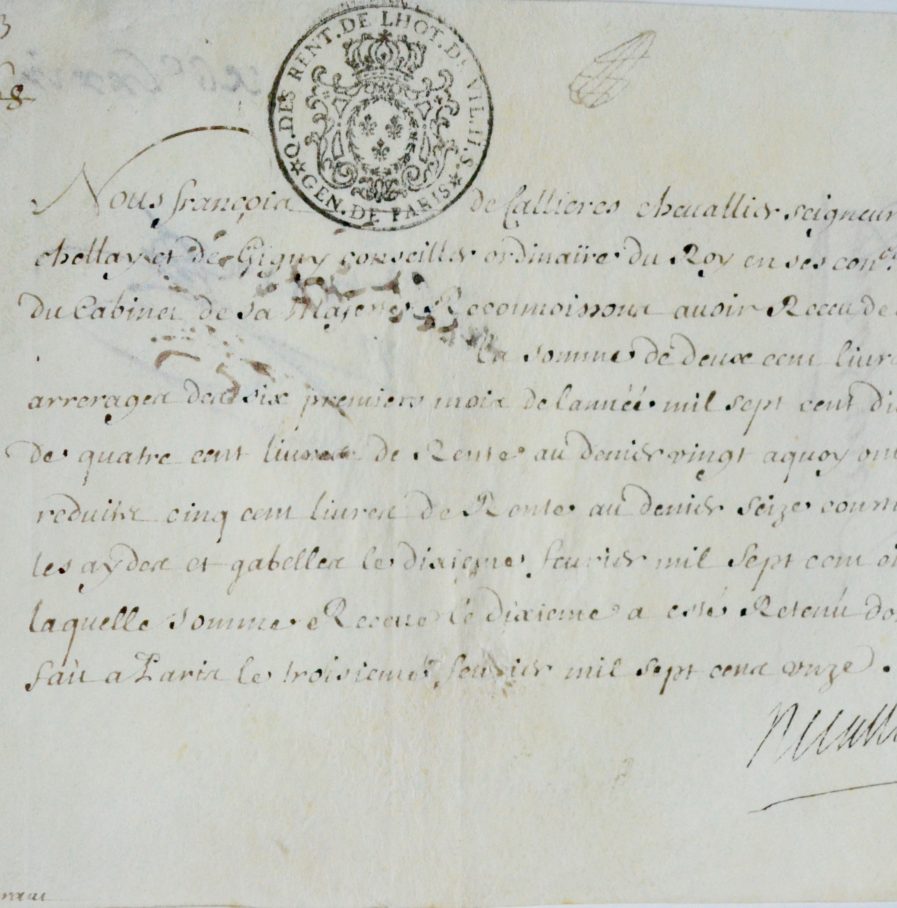 Q. DES RENT. DE LHOT. D. VIL. H. S.
GEN. DE PARIS
Nous françois de Callieres cheuallier seigneur
chellay et de Gigny conseiller ordinaire du Roy en ses con.
du Cabinet de sa Majesté Reconnoissons auoir Receu de
la somme de deux cent liur
arrerages des six premiers mois de lannéé mil sept cent di
de quatre cent liures de Rente au denier vingt aquoy ont
reduitte cinq cent liures de Rente au denier seize
les aydes et gabelles le dixieme feurier mil sept cent
laquelle somme Receue le dixieme a esté Retenu do
fait a Paris le troisieme feurier mil sept cens onze.